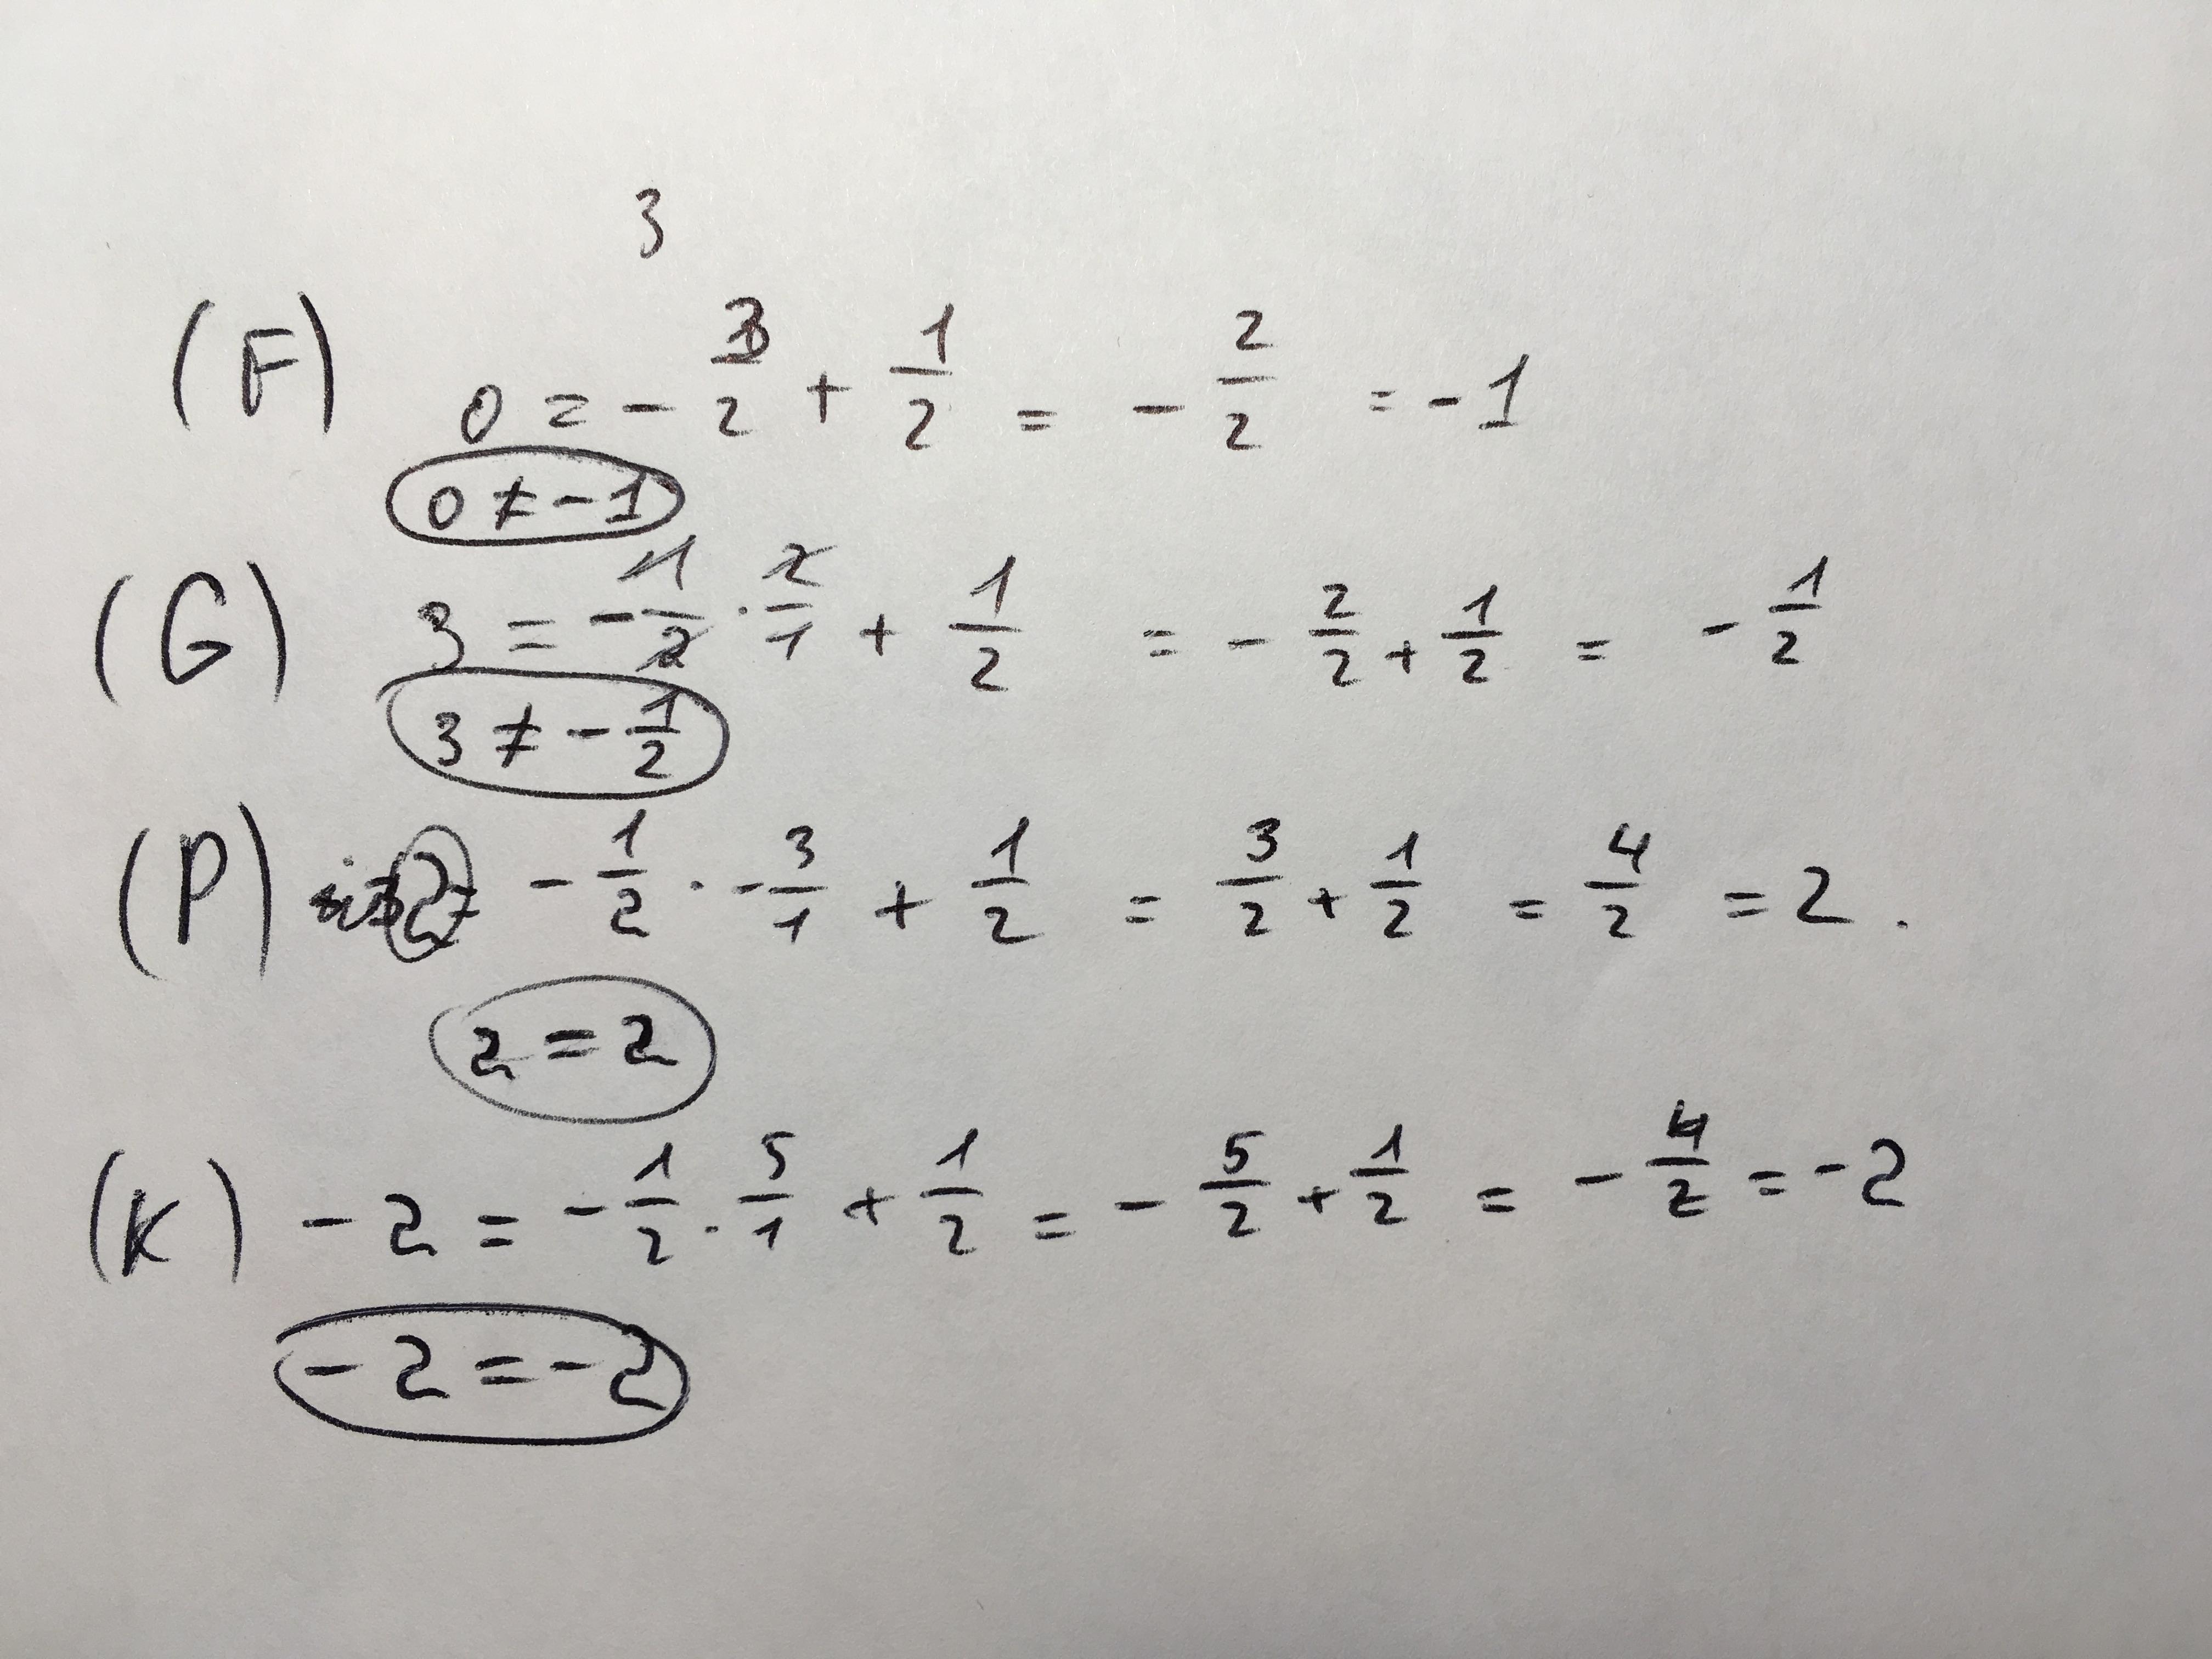 3
(F) 0 = - 3/2 + 1/2 = - 2/2 = -1
0 ≠ -1
(G) 3 = - 1/2 · 2/1 + 1/2 = - 2/2 + 1/2 = - 1/2
3 ≠ - 1/2
(P) 2= - 1/2 · - 3/1 + 1/2 = 3/2 + 1/2 = 4/2 = 2 .
2 = 2
(K) - 2 = - 1/2 · 5/1 + 1/2 = - 5/2 + 1/2 = - 4/2 = -2
- 2 = -2